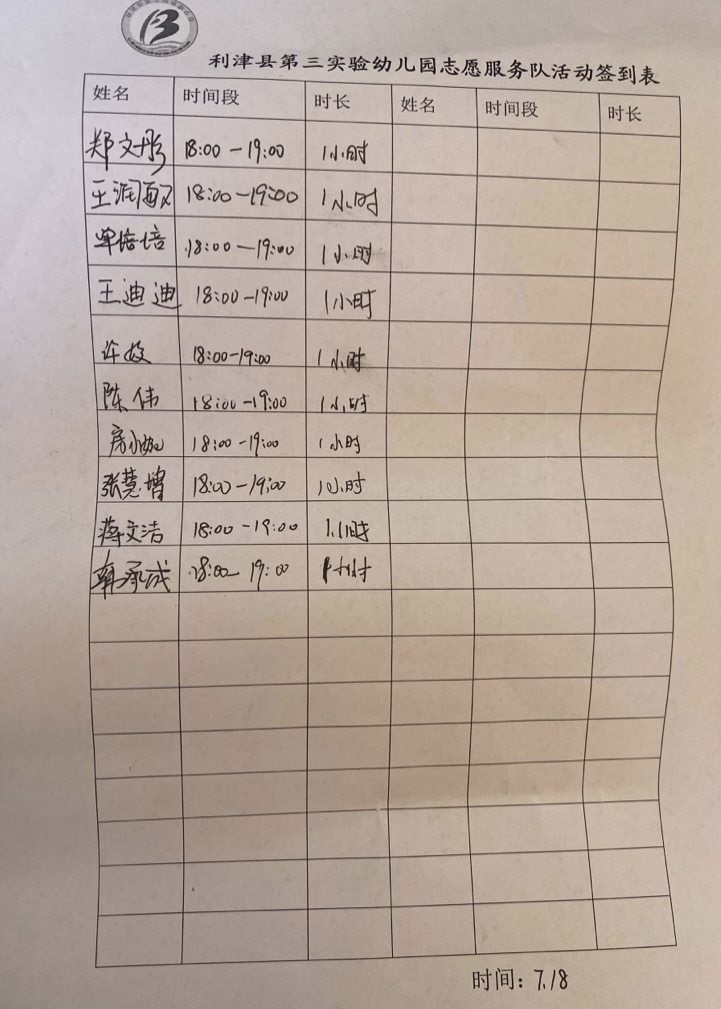 利津县第三实验幼儿园志愿服务队活动签到表
姓名 时间段 时长 姓名 时间段 时长
郑文彤 18:00-19:00 1小时
王润 18:00-19:00 1小时
培培 18:00-19:00 1小时
王迪迪 18:00-19:00 1小时
许 18:00-19:00 1小时
陈伟 18:00-19:00 1小时
房 18:00-19:00 1小时
张慧增 18:00-19:00 1小时
蒋文洁 18:00-19:00 1小时
承成 18:00-19:00 1小时
时间：7.18